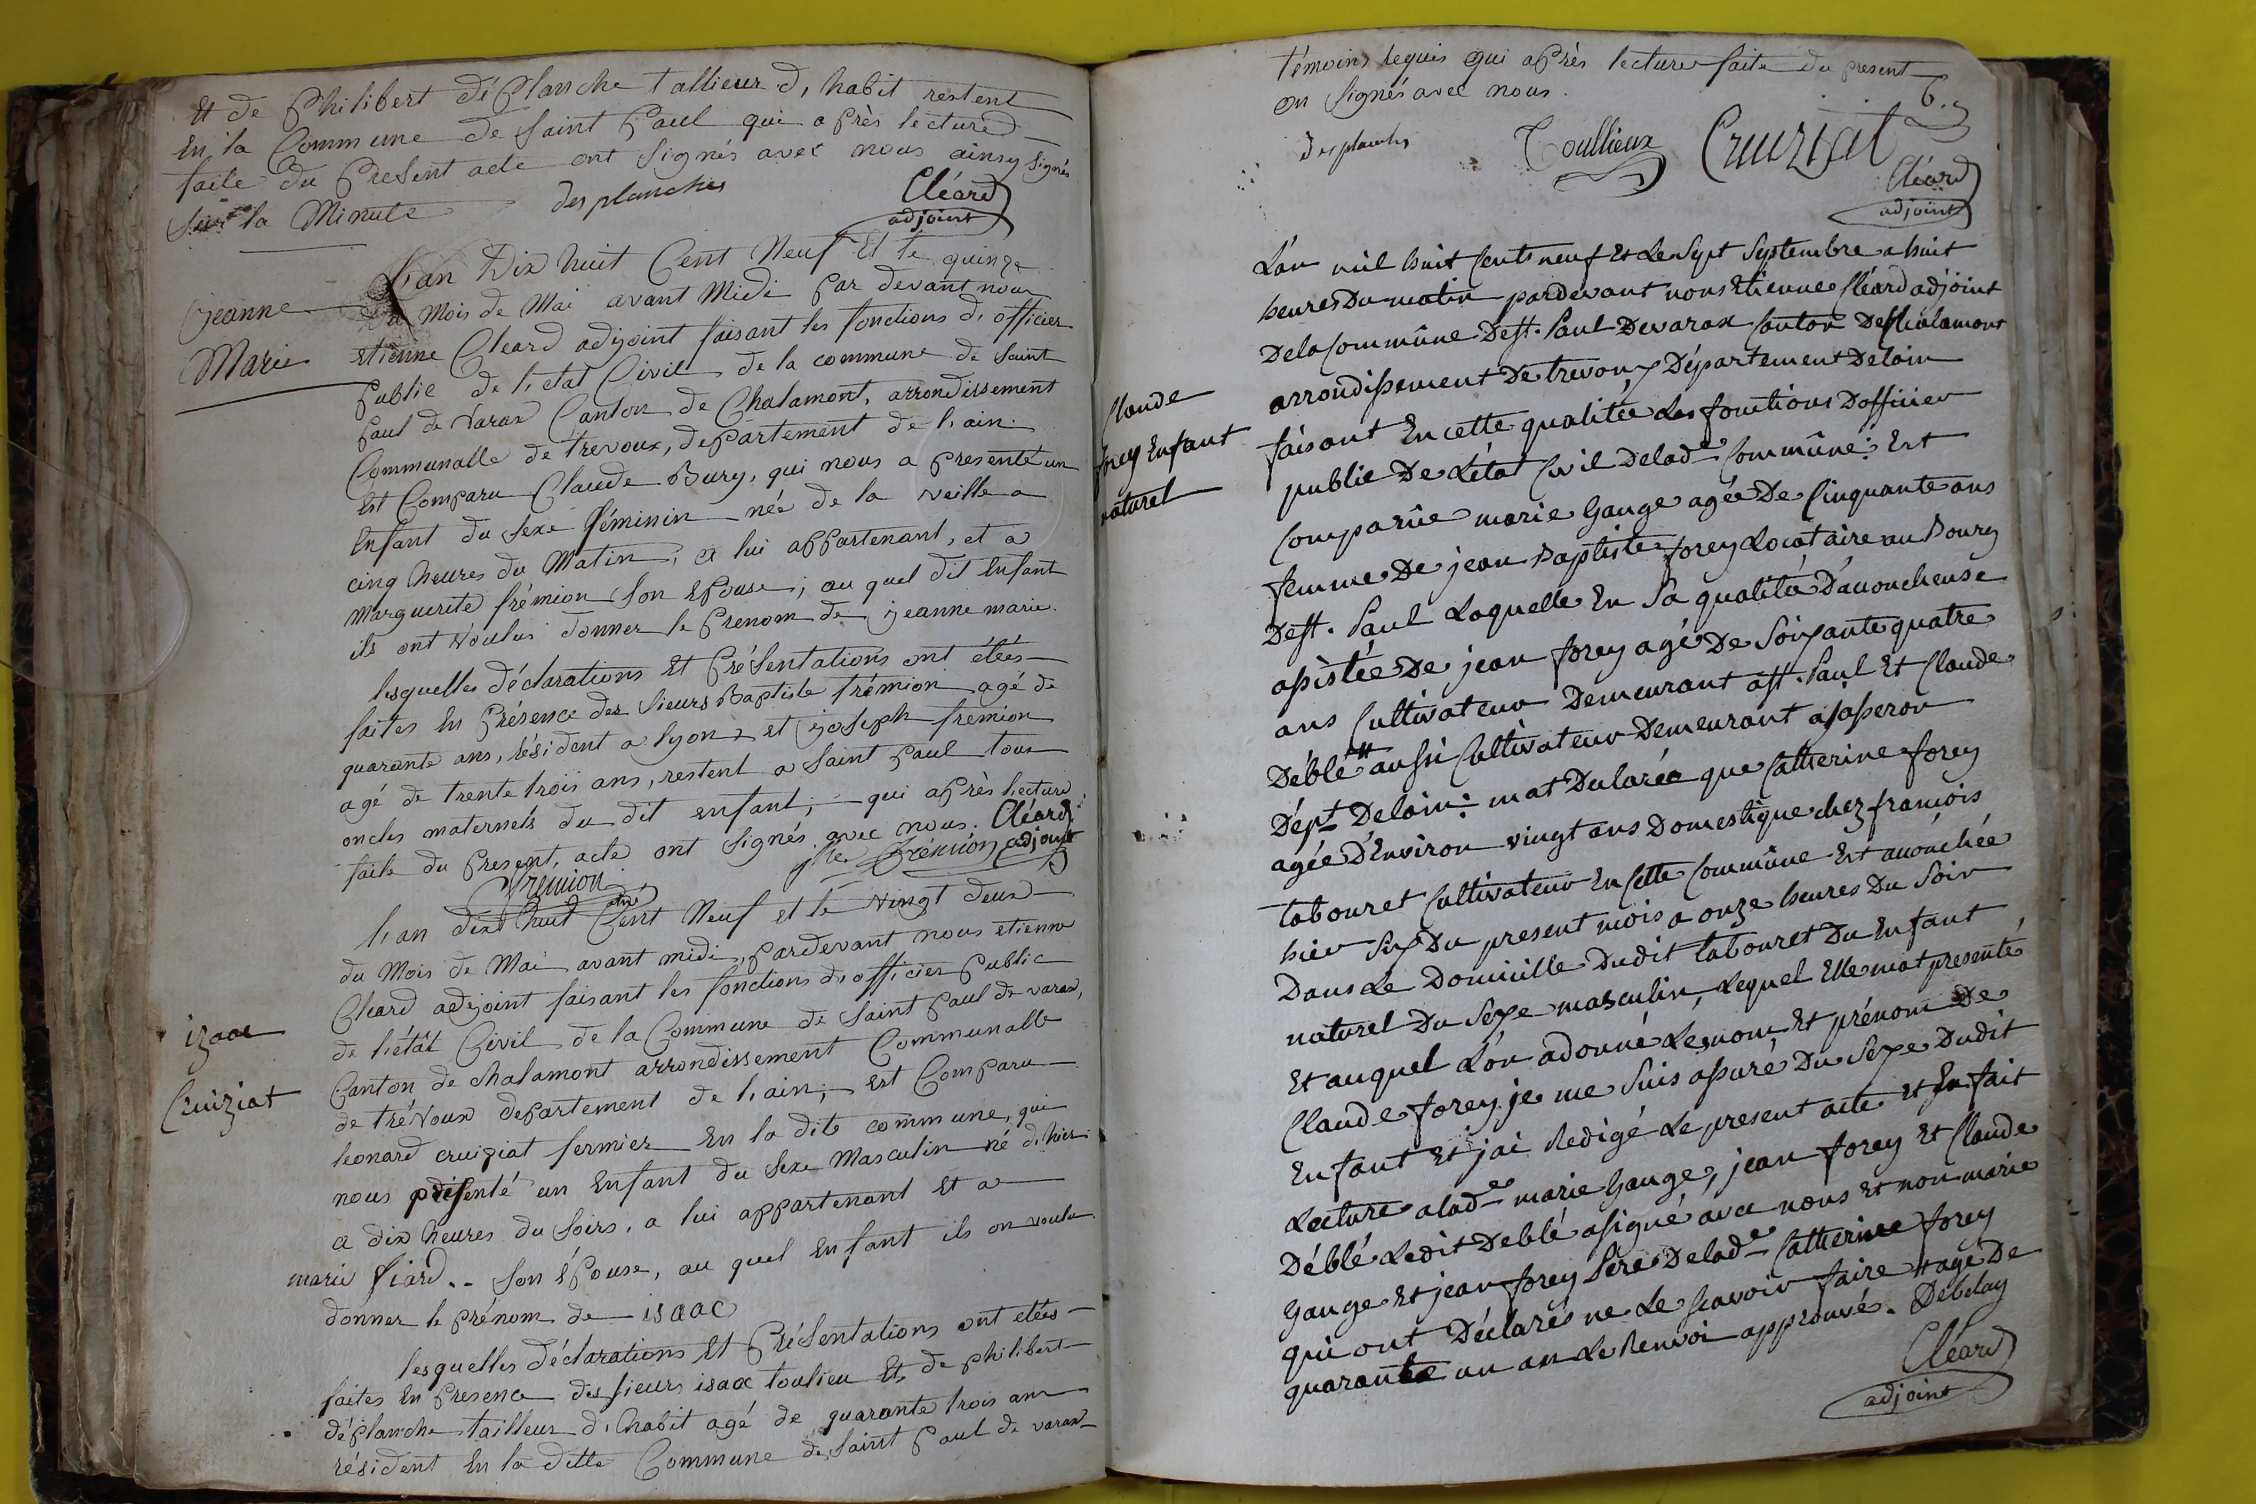 Et de Philibert déplanche tallieur d, habit restent
En la Commune de Saint Paul qui après lectured
faite du Present acte ont Signés avec nous ainsy Signés
sur la Minute
des planches
Cléard
adjoint
jeanne
Marie
L'an Dix huit Cent Neuf Et le quinze
du Mois de Mai avant Midi par devant nous
etienne Cleard adjoint faisant les fonctions d, officier
Public de l, etat Civil de la commune de Saint
Paul de Varax Canton de Chalamont, arrondissement
Communalle de trevoux, departement de l, ain.
Est Comparu Claude Bury, qui nous a presenté un
Enfant du Sexe féminin née de la veille a
cinq heures du Matin, a lui appartenant, et a
Marguerite frémion Son Epouse; au quel dit Enfant
ils ont voulus donner le Prenom de jeanne marie.
lesquelles déclarations Et Présentations ont étées
faites En Présence des Sieurs Baptiste frémion agé de
quarante ans, résident a lyon, et joseph fremion
agé de trente trois ans, restent a Saint Paul tous
oncles maternels du dit enfant; qui après lecture
faite du Present, acte ont Signés avec nous. Cléard
adjoint
frémion
fremion
izaac
Cruiziat
l, an dix huit Cent Neuf et le vingt deux
du Mois de Mai avant midi, pardevant nous etienne
Cleard adjoint faisant les fonctions d, officier Public
de l, état Civil de la Commune de Saint Paul de varax,
Canton de chalamont arrondissement Communalle
de tréVoux departement de l, ain; est Comparu
leonard cruiziat fermier En la dite commune, qui
nous présenté un Enfant du Sexe Masculin né d, hier
a dix heures du Soirs, a lui appartenant Et a
marie fiard.. Son Epouse, au quel Enfant ils on voulu
donner le prénom de isaac
lesquelles déclarations Et Présentations ont etées
faites En Presence des sieurs isaac toulieu Et de philibert
déplanche tailleur d, habit agé de quarante trois ans
résident En la ditte Commune de Saint Paul de varax
témoins requis qui après lecture faite du present
on Signés avec nous.
6.
desplanches
Toullieux
Cruiziat
Cléard
adjoint
Claude
forey Enfant
naturel
L'an mil huit Cents neuf Et Le Sept Septembre a huit
heures Du matin pardevant nous Etienne Cléard adjoint
De la Commûne De St. Paul Devarax Canton De Chalamont
arrondissement De trevoux Département De lain
faisant En cette qualitée Les fonctions Dofficier
public De L'état Civil Delade Commûne: Est
Comparûe marie Gauge agée De Cinquante ans
femme De jean Baptiste forey Locataire au Bourg
De St. Paul Laquelle En Sa qualité Dacoucheuse
asistée De jean forey agé De Soixante quatre
ans Cultivateur Demeurant a St. Paul Et Claude
Déblé # aussi Cultivateur Demeurant a
Dépt Delain: mat Dularée que Catherine forey
agée D'Environ vingt ans Domestique chez françois
tabouret Cultivateur En Cette Commûne Est acouchée
hier Six Du present mois a onze heures Du Soir
Dans Le Domicille Dudit tabouret Du Enfant
naturel Du Sexe masculin, Lequel Elle mat presenté
Et auquel L'on a donné Les nom Et prénom De
Claude forey. je me Suis assuré Du Sexe Dudit
Enfant Et j'ai Redigé Le present acte Et En fait
Lecture alade marie Gauge, jean forey Et Claude
Déblé Ledit Deblé a signé avec nous Et non marie
Gauge Et jean forey Pere Delade Catherine forey
qui ont Déclarés ne Le Scavoir faire # agé De
quarante un an Le Renvoi approuvé. Debelay
Cléard
adjoint